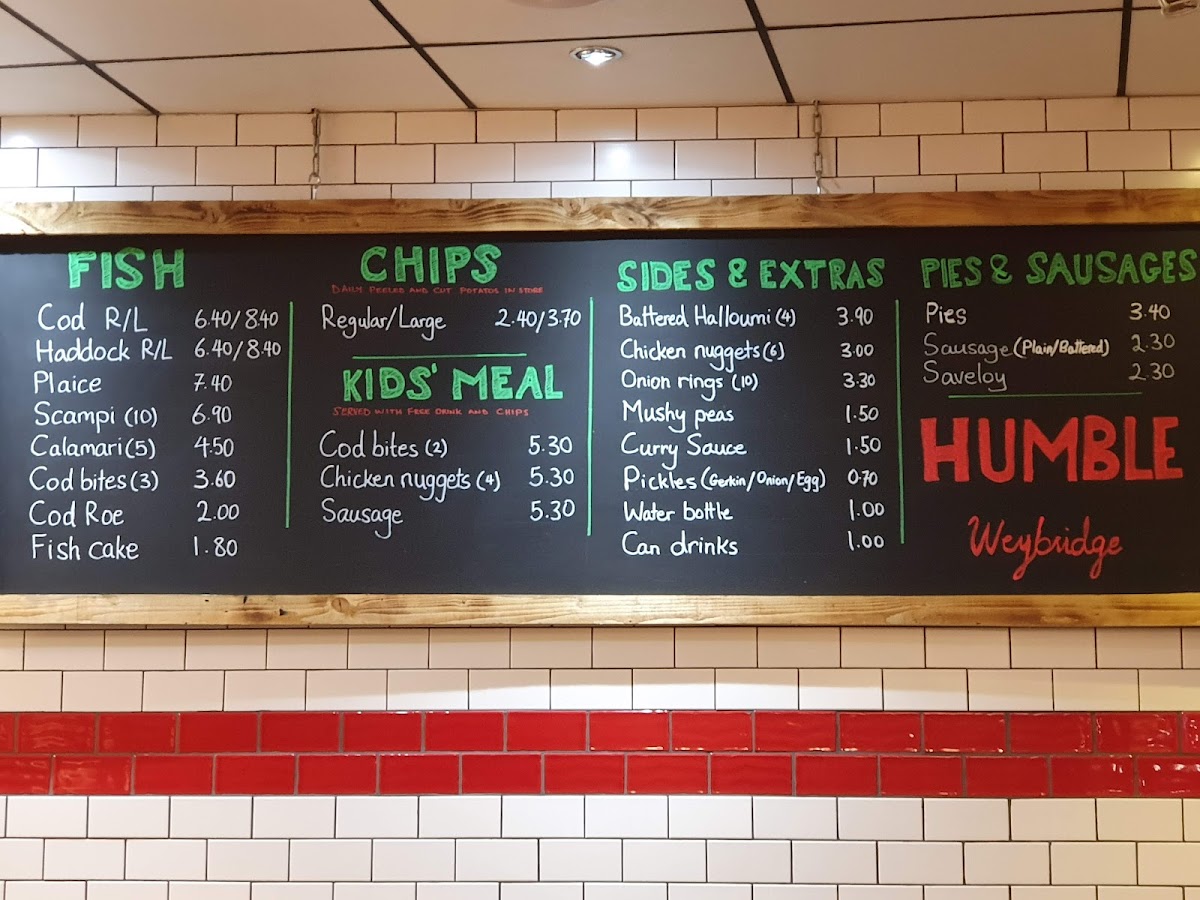 FISH
Cod R/L 6.40/8.40
Haddock R/L 6.40/8.40
Plaice 7.40
Scampi (10) 6.90
Calamari (5) 4.50
Cod bites (3) 3.60
Cod Roe 2.00
Fish cake 1.80
CHIPS
DAILY PEELED AND CUT POTATOS IN STORE
Regular/Large 2.40/3.70
KIDS' MEAL
SERVED WITH FREE DRINK AND CHIPS
Cod bites (2) 5.30
Chicken nuggets (4) 5.30
Sausage 5.30
SIDES & EXTRAS
Battered Halloumi (4) 3.90
Chicken nuggets (6) 3.00
Onion rings (10) 3.30
Mushy peas 1.50
Curry Sauce 1.50
Pickles (Gerkin/Onion/Egg) 0.70
Water bottle 1.00
Can drinks 1.00
PIES & SAUSAGES
Pies 3.40
Sausage (Plain/Battered) 2.30
Saveloy 2.30
HUMBLE
Weybridge